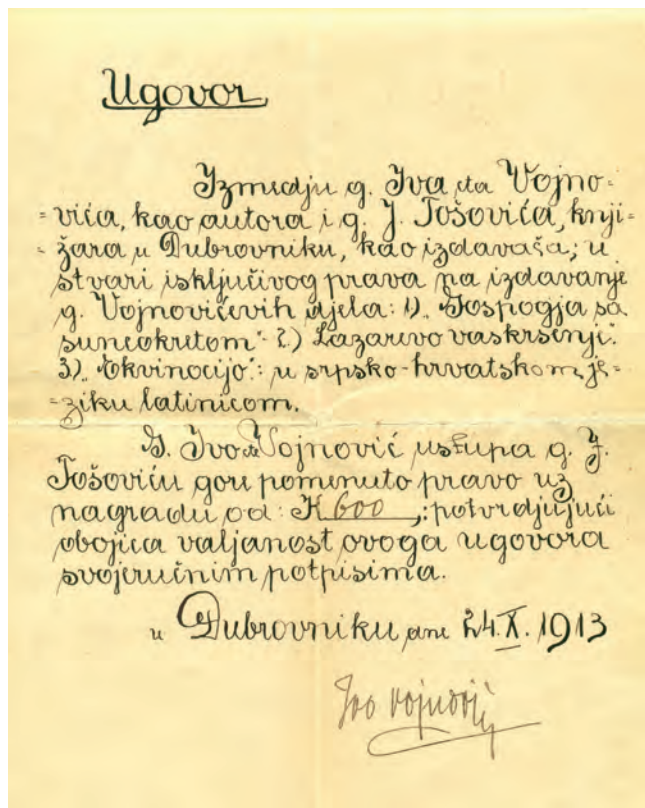 Ugovor
Izmedju g. Iva cta Vojno-
-vića, kao autora i g. J. Tošovića, knji-
-žara u Dubrovniku, kao izdavaša; u
stvari isključivog prava na izdavanje
g. Vojnovićevih djela: 1). "Gospogja sa
suncokretom" 2.) Lazarevo vaskrsenje".
3). "Ekvinocijo": u srpsko-hrvatskom je-
-ziku latinicom.
G. Ivo cta Vojnović ustupa g. J.
Tošoviću gori pomenuto pravo uz
nagradu od: K 600,; potvrdjujući
obojica valjanost ovoga ugovora
svojeručnim potpisima.
u Dubrovniku, dne 24. X. 1913
Ivo Vojnović